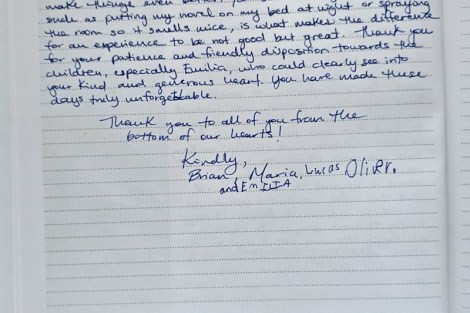 make things even better. You
such as putting my on my bed at night or spraying
the room so it smells nice, is what makes the difference
for an experience to be not good but great. Thank you
for your patience and friendly disposition towards the
children, especially Emilia, who could clearly see into
your kind and generous heart. You have made these
days truly unforgettable.
Thank you to all of you from the
bottom of our hearts!
Kindly,
Brian, Maria, Lucas Oliver.
and EmILIA